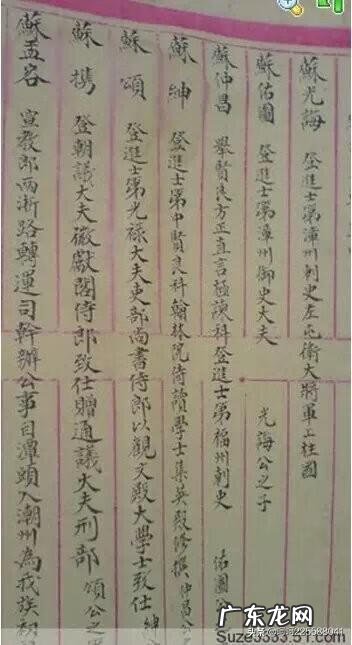 蘇光誨 登進士第漳州刺史左屯衛大將軍上柱國
蘇佑圖 登進士第漳州御史大夫 光誨公之子
蘇仲昌 舉賢良方正直言極諫科登進士第福州刺史 佑圖公
蘇紳 登進士第中賢良科翰林院侍讀學士集英殿修撰 仲昌公
蘇頌 登進士第光祿大夫吏部尚書侍郎以觀文殿大學士致仕 紳
蘇攜 登朝議大夫徽猷閣侍郎致仕贈通議大夫刑部 頌公之
蘇孟容 宣教郎兩浙路轉運司幹辦公事自潭頭入潮州為我族初
225588041
广东龙网
Suze3333.51.com